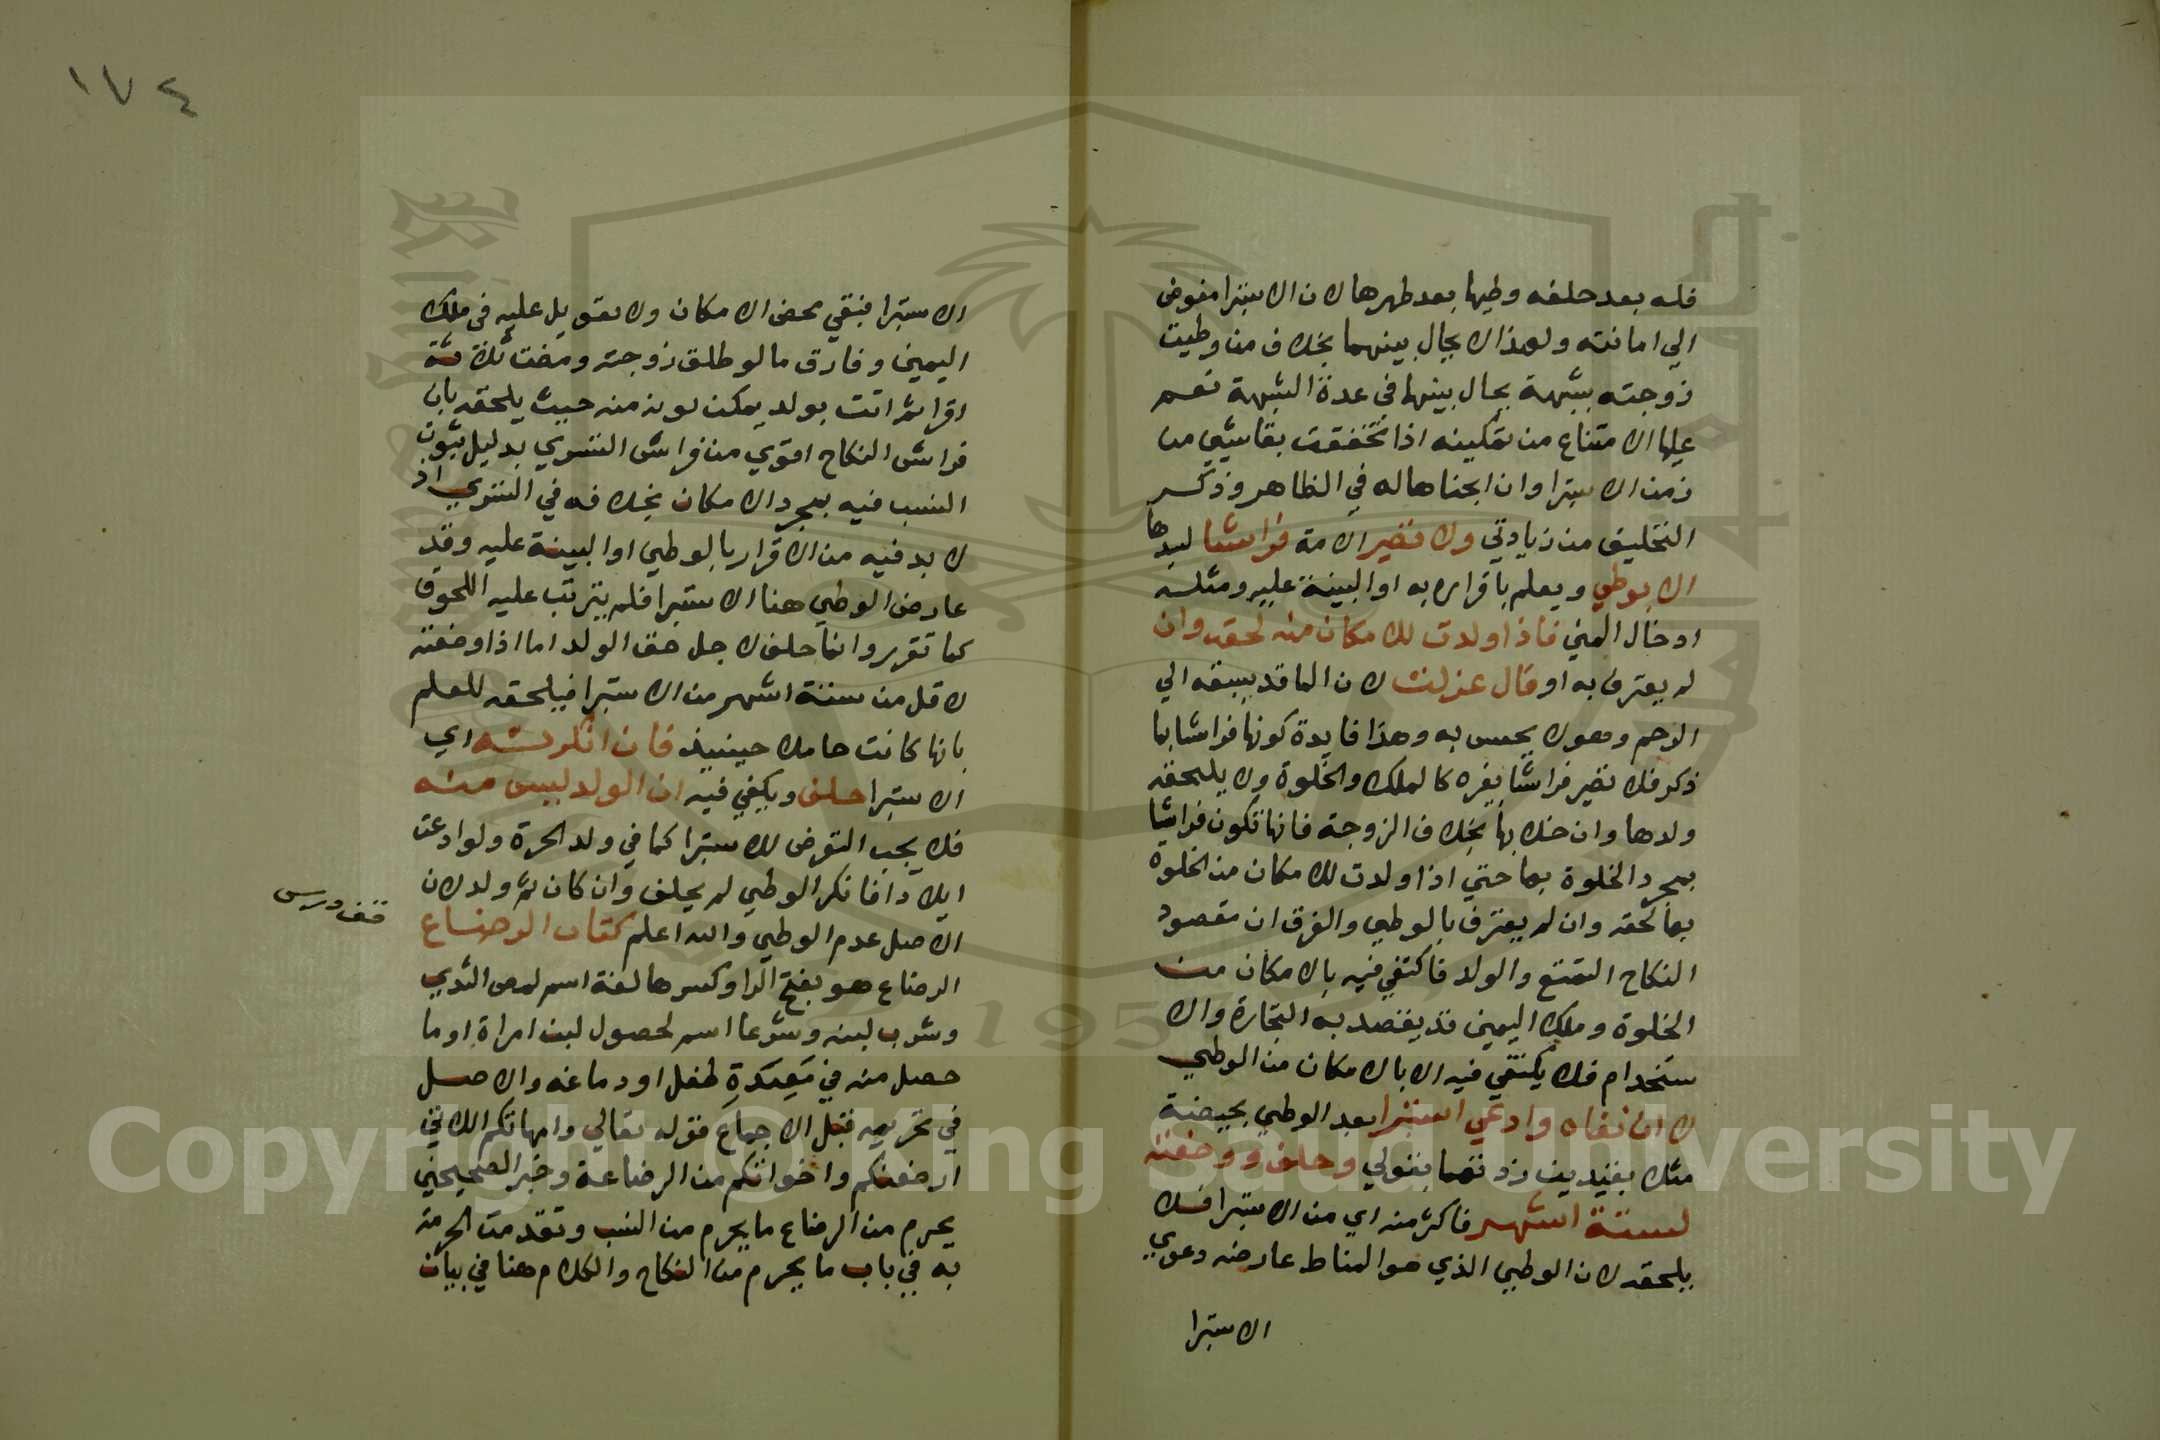 فله بعد حلفه وطيها بعد طهرها لان الاستبرا مفوض
الي امانته ولهذا لا يحال بينهما بخلاف من وطيت
زوجته بشبهة يحال بينهما في عدة الشبهة نعم
عليها الامتناع من تمكينه اذا تحققت بقا شيي من
زمن الاستبرا وان ابحناها له في الظاهر وذكر
التحليف من زيادتي ولا تصير الامة فراشا لسيدها
الا بوطي ويعلم باقراره به او البينة عليه ومثله
ادخال المني فاذا ولدت للامكان منه لحقه وان
لم يعترف به او قال عزلت لان الما قد يسبقه الي
الرحم وهو لا يحس به وهذا فايدة كونها فراشا بما
ذكر فلا تصير فراشا بغيره كالملك والخلوة ولا يلحقه
ولدها وان خلا بها بخلاف الزوجة فانها تكون فراشا
بمجرد الخلوة بها حتي اذا ولدت للامكان من الخلوة
بها لحقه وان لم يعترف بالوطي والفرق ان مقصود
النكاح التمتع والولد فاكتفي فيه بالامكان من
الخلوة وملك اليمين قد يقصد به التجارة والا
ستخدام فلا يكتفي فيه الا بالامكان من الوطي
لا ان نفاه وادعي استبرا بعد الوطي بحيضة
مثلا بقيدين زدتهما بقولي وحلف ووضعته
لستة اشهر فاكثر منه اي من الاستبرا فلا
يلحقه لان الوطي الذي هو المناط عارضه دعوي
الاستبرا
١٧٤
الاستبرا فبقي محض الامكان ولا تعويل عليه في ملك
اليمين وفارق ما لو طلق زوجته ومضت ثلاثة
اقرا ثم اتت بولد يمكن كونه منه حيث يلحقه بان
فراش النكاح اقوي من فراش التسري بدليل ثبوت
النسب فيه بمجرد الامكان بخلافه في التسري اذ
لا بد فيه من الاقرار بالوطي او البينة عليه وقد
عارض الوطي هنا الاستبرا فلم يترتب عليه اللحوق
كما تقرر وانما حلف لاجل حق الولد اما اذا وضعته
لاقل من ستة اشهر من الاستبرا فيلحقه للعلم
بانها كانت حاملا حينيذ فان انكرته اي
الاستبرا حلف ويكفي فيه ان الولد ليس منه
فلا يجب التعرض للاستبرا كما في ولد الحرة ولو ادعت
ايلادا فانكر الوطي لم يحلف وان كان ثم ولد لان
الاصل عدم الوطي والله اعلم كتاب الرضاع
قف درس
الرضاع هو بفتح الرا وكسرها لغة اسم لمص الثدي
وشرب لبنه وشرعا اسم لحصول لبن امراة او ما
حصل منه في معدة طفل او دماغه والاصل
في تحريمه قبل الاجماع قوله تعالي وامهاتكم اللاتي
ارضعنكم واخواتكم من الرضاعة وخبر الصحيحين
يحرم من الرضاع ما يحرم من النسب وتقدمت الحرمة
به في باب ما يحرم من النكاح والكلام هنا في بيان
Copyright © King Saud University
1957